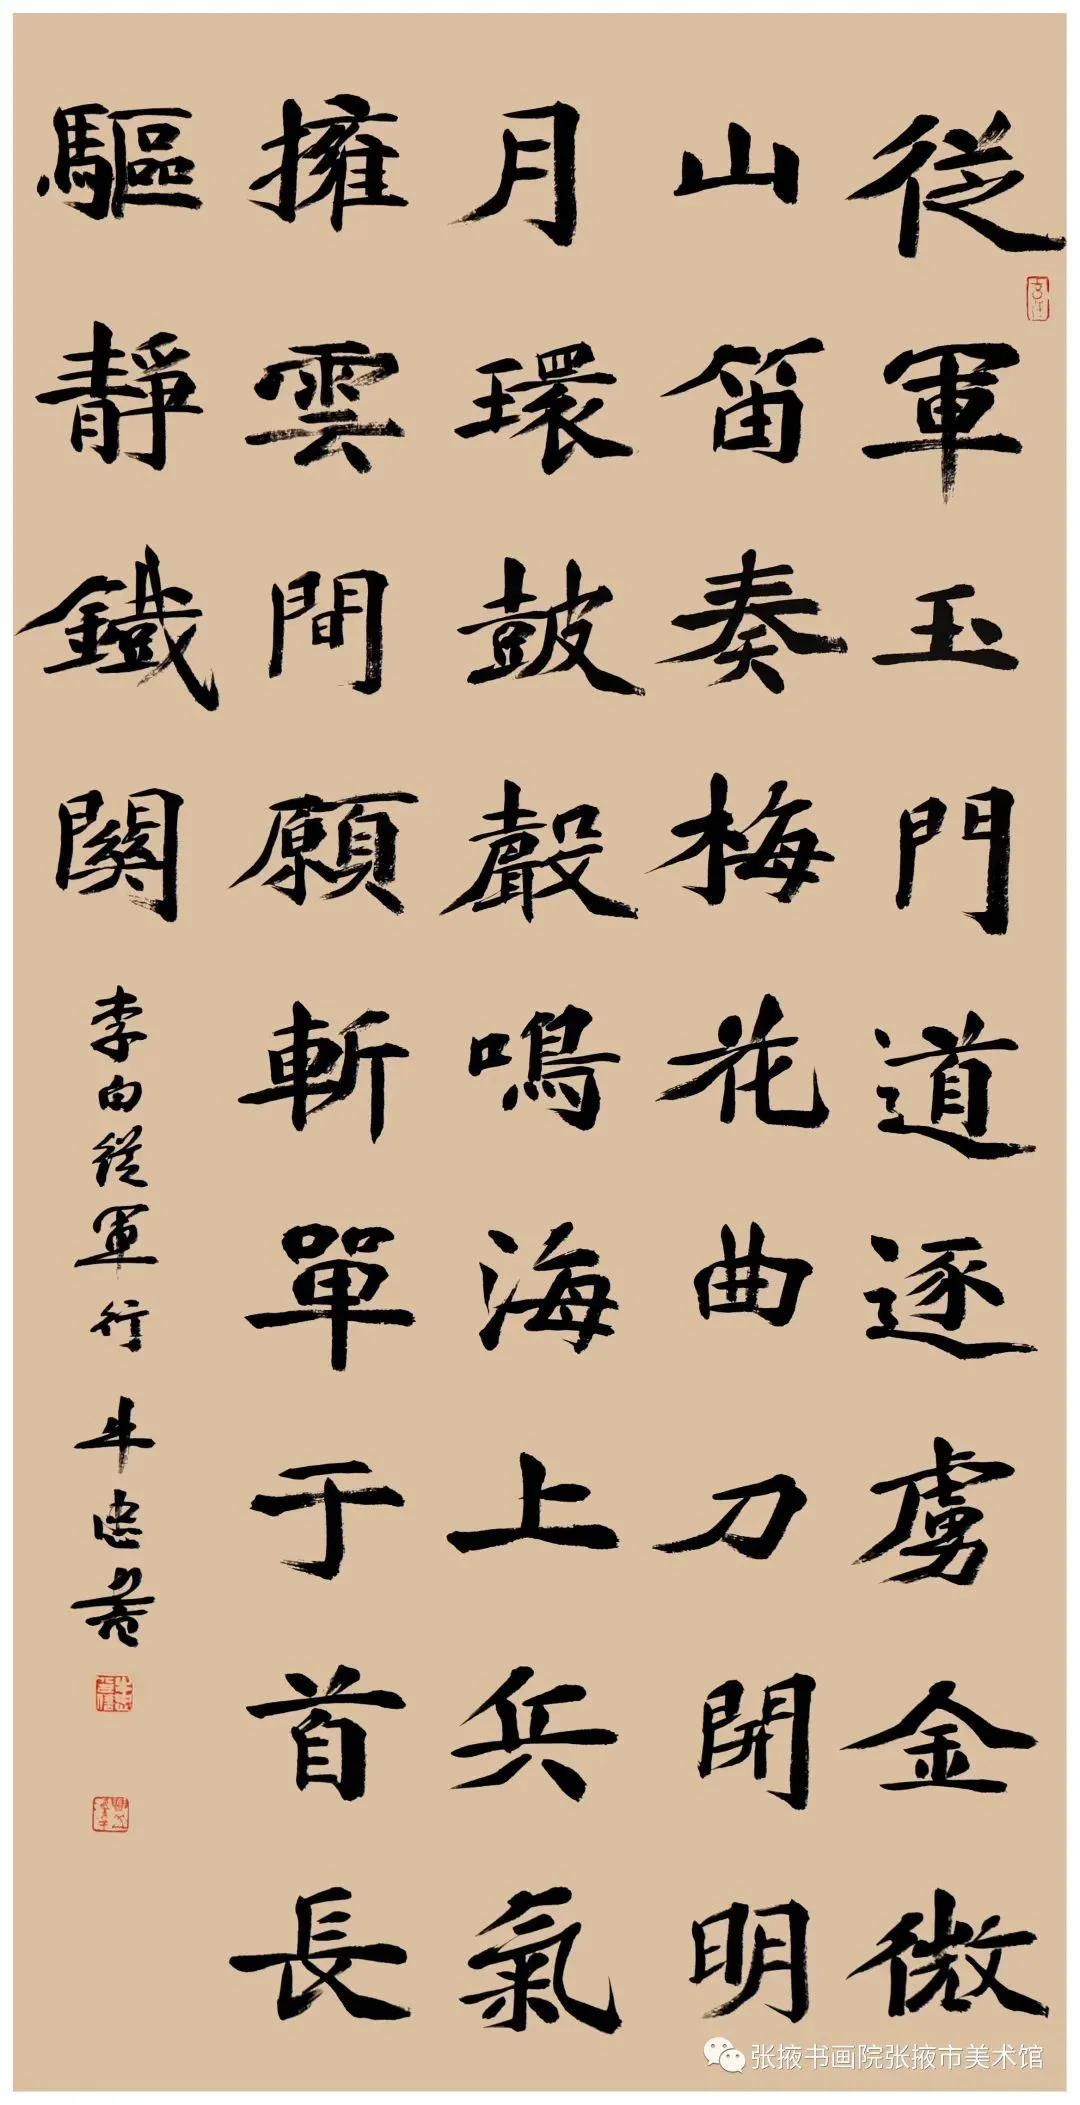 從軍玉門道逐虜金微
山笛奏梅花曲刀開明
月環鼓聲鳴海上兵氣
擁雲間願斬單于首長
驅靜鐵關
李白從軍行 牛忠
张掖书画院张掖市美术馆